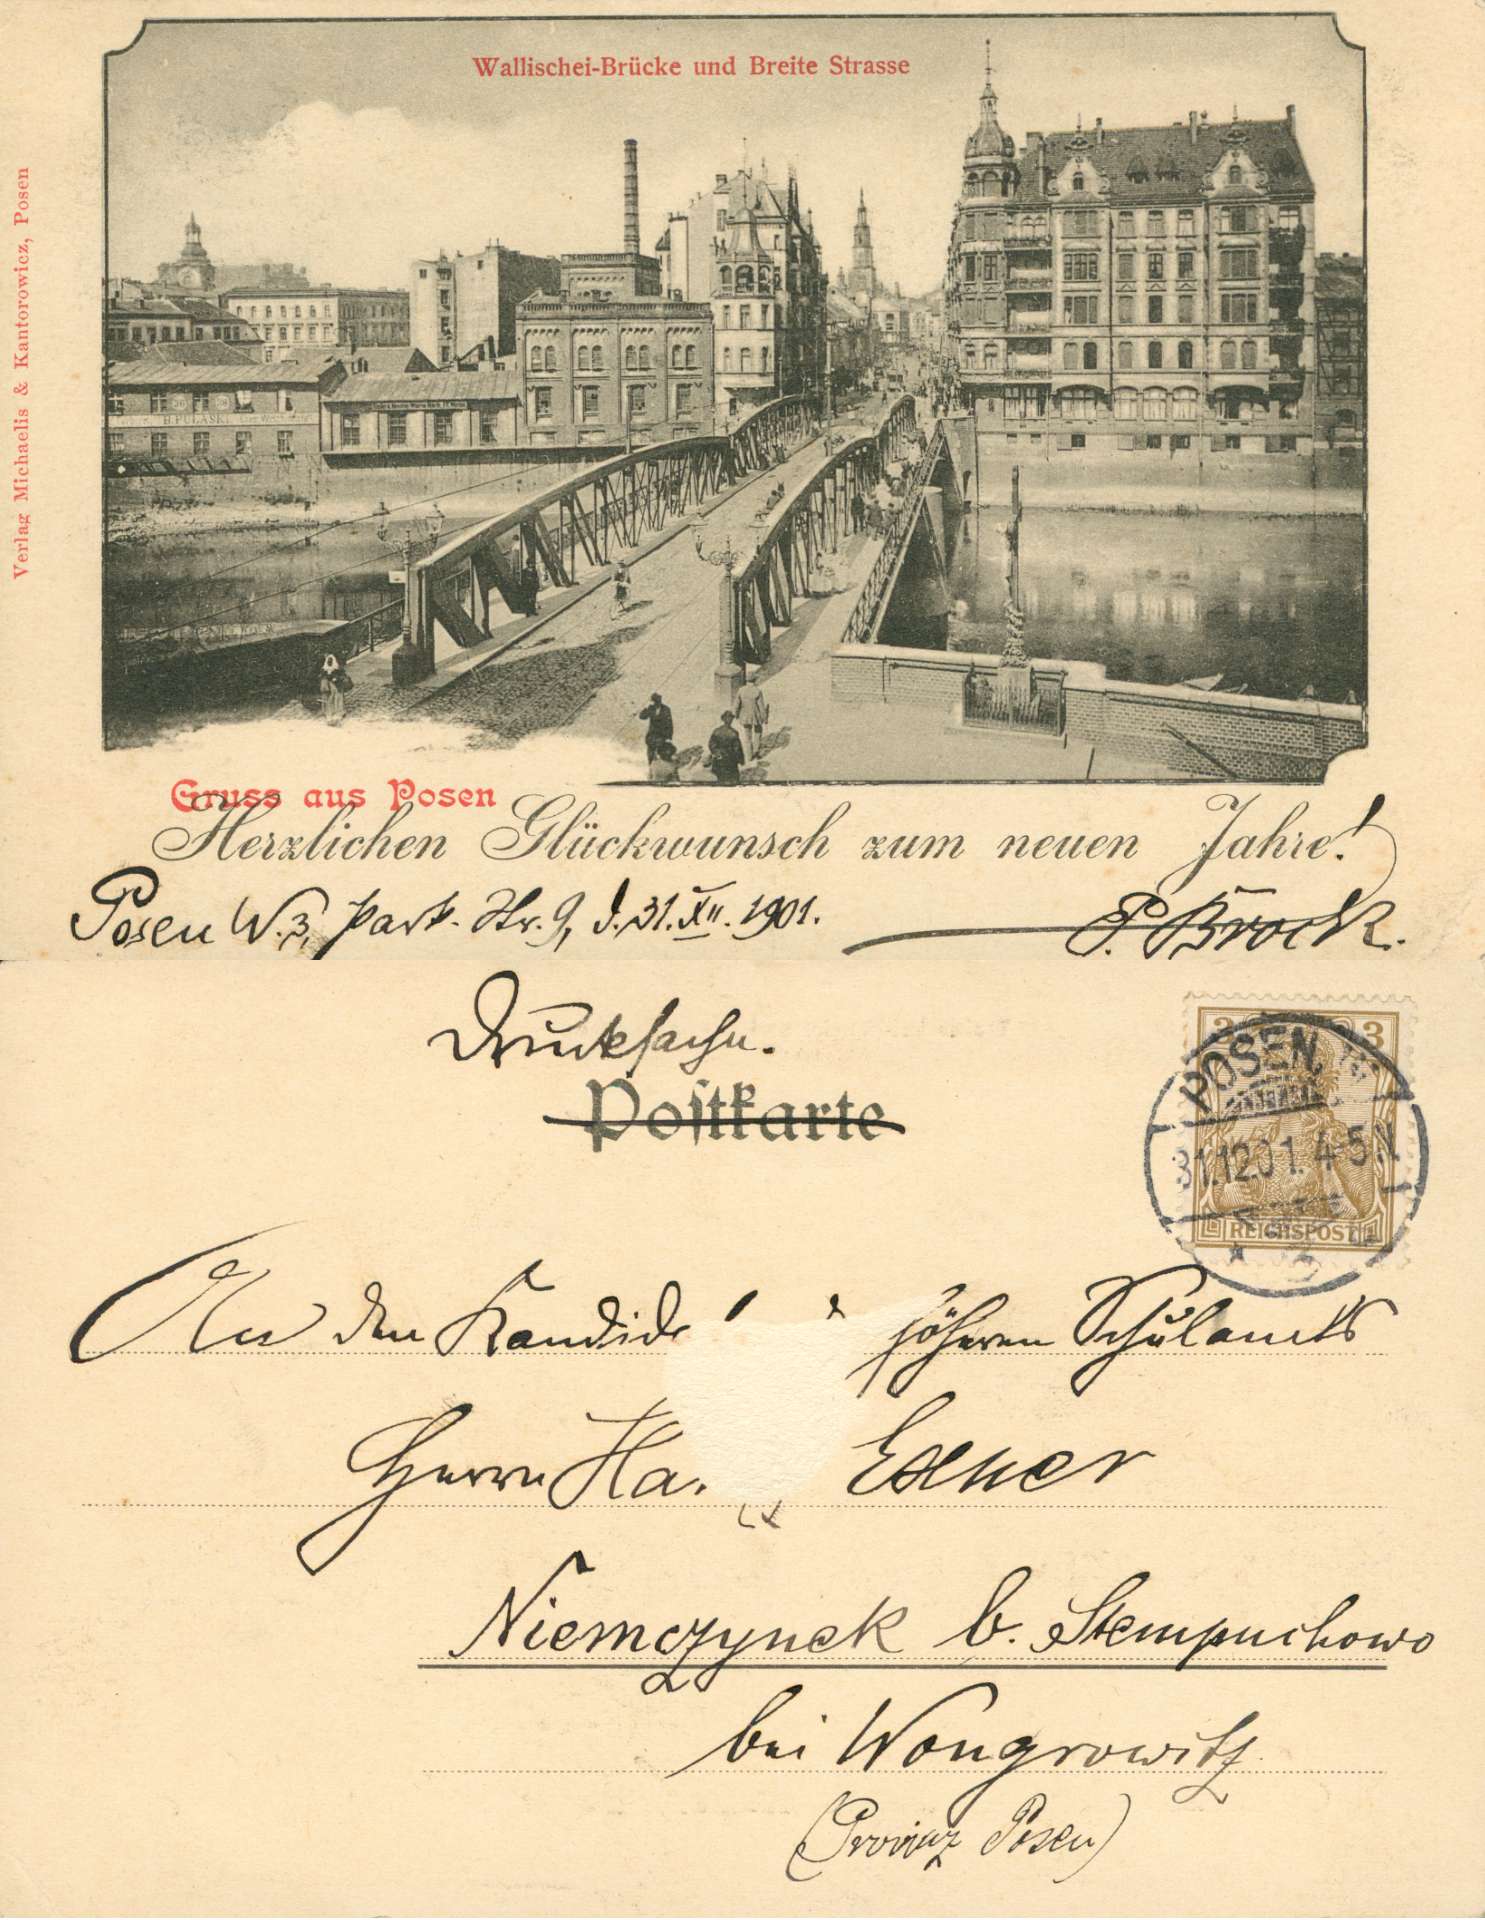 Wallischei-Brücke und Breite Strasse
Verlag Michaelis & Kantorowicz, Posen
Gruss aus Posen
Herzlichen Glückwunsch zum neuen Jahre!
Posen W. 3, Park-Str. 9, d. 31. XII. 1901.
P. Brock.
Drucksache.
Postkarte
3 3
POSEN
31.12.01. 4-5N
REICHSPOST
* 3
An den Kandida höheren Schulamts
Herrn Ha Exner
Niemczynek b. Stempuchowo
bei Wongrowitz
(Provinz Posen)